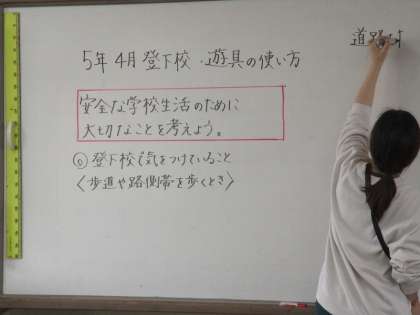 5年4月 登下校・遊具の使い方
安全な学校生活のために
大切なことを考えよう。
◎登下校で気をつけていること
〈歩道や路側帯を歩くとき〉
道路